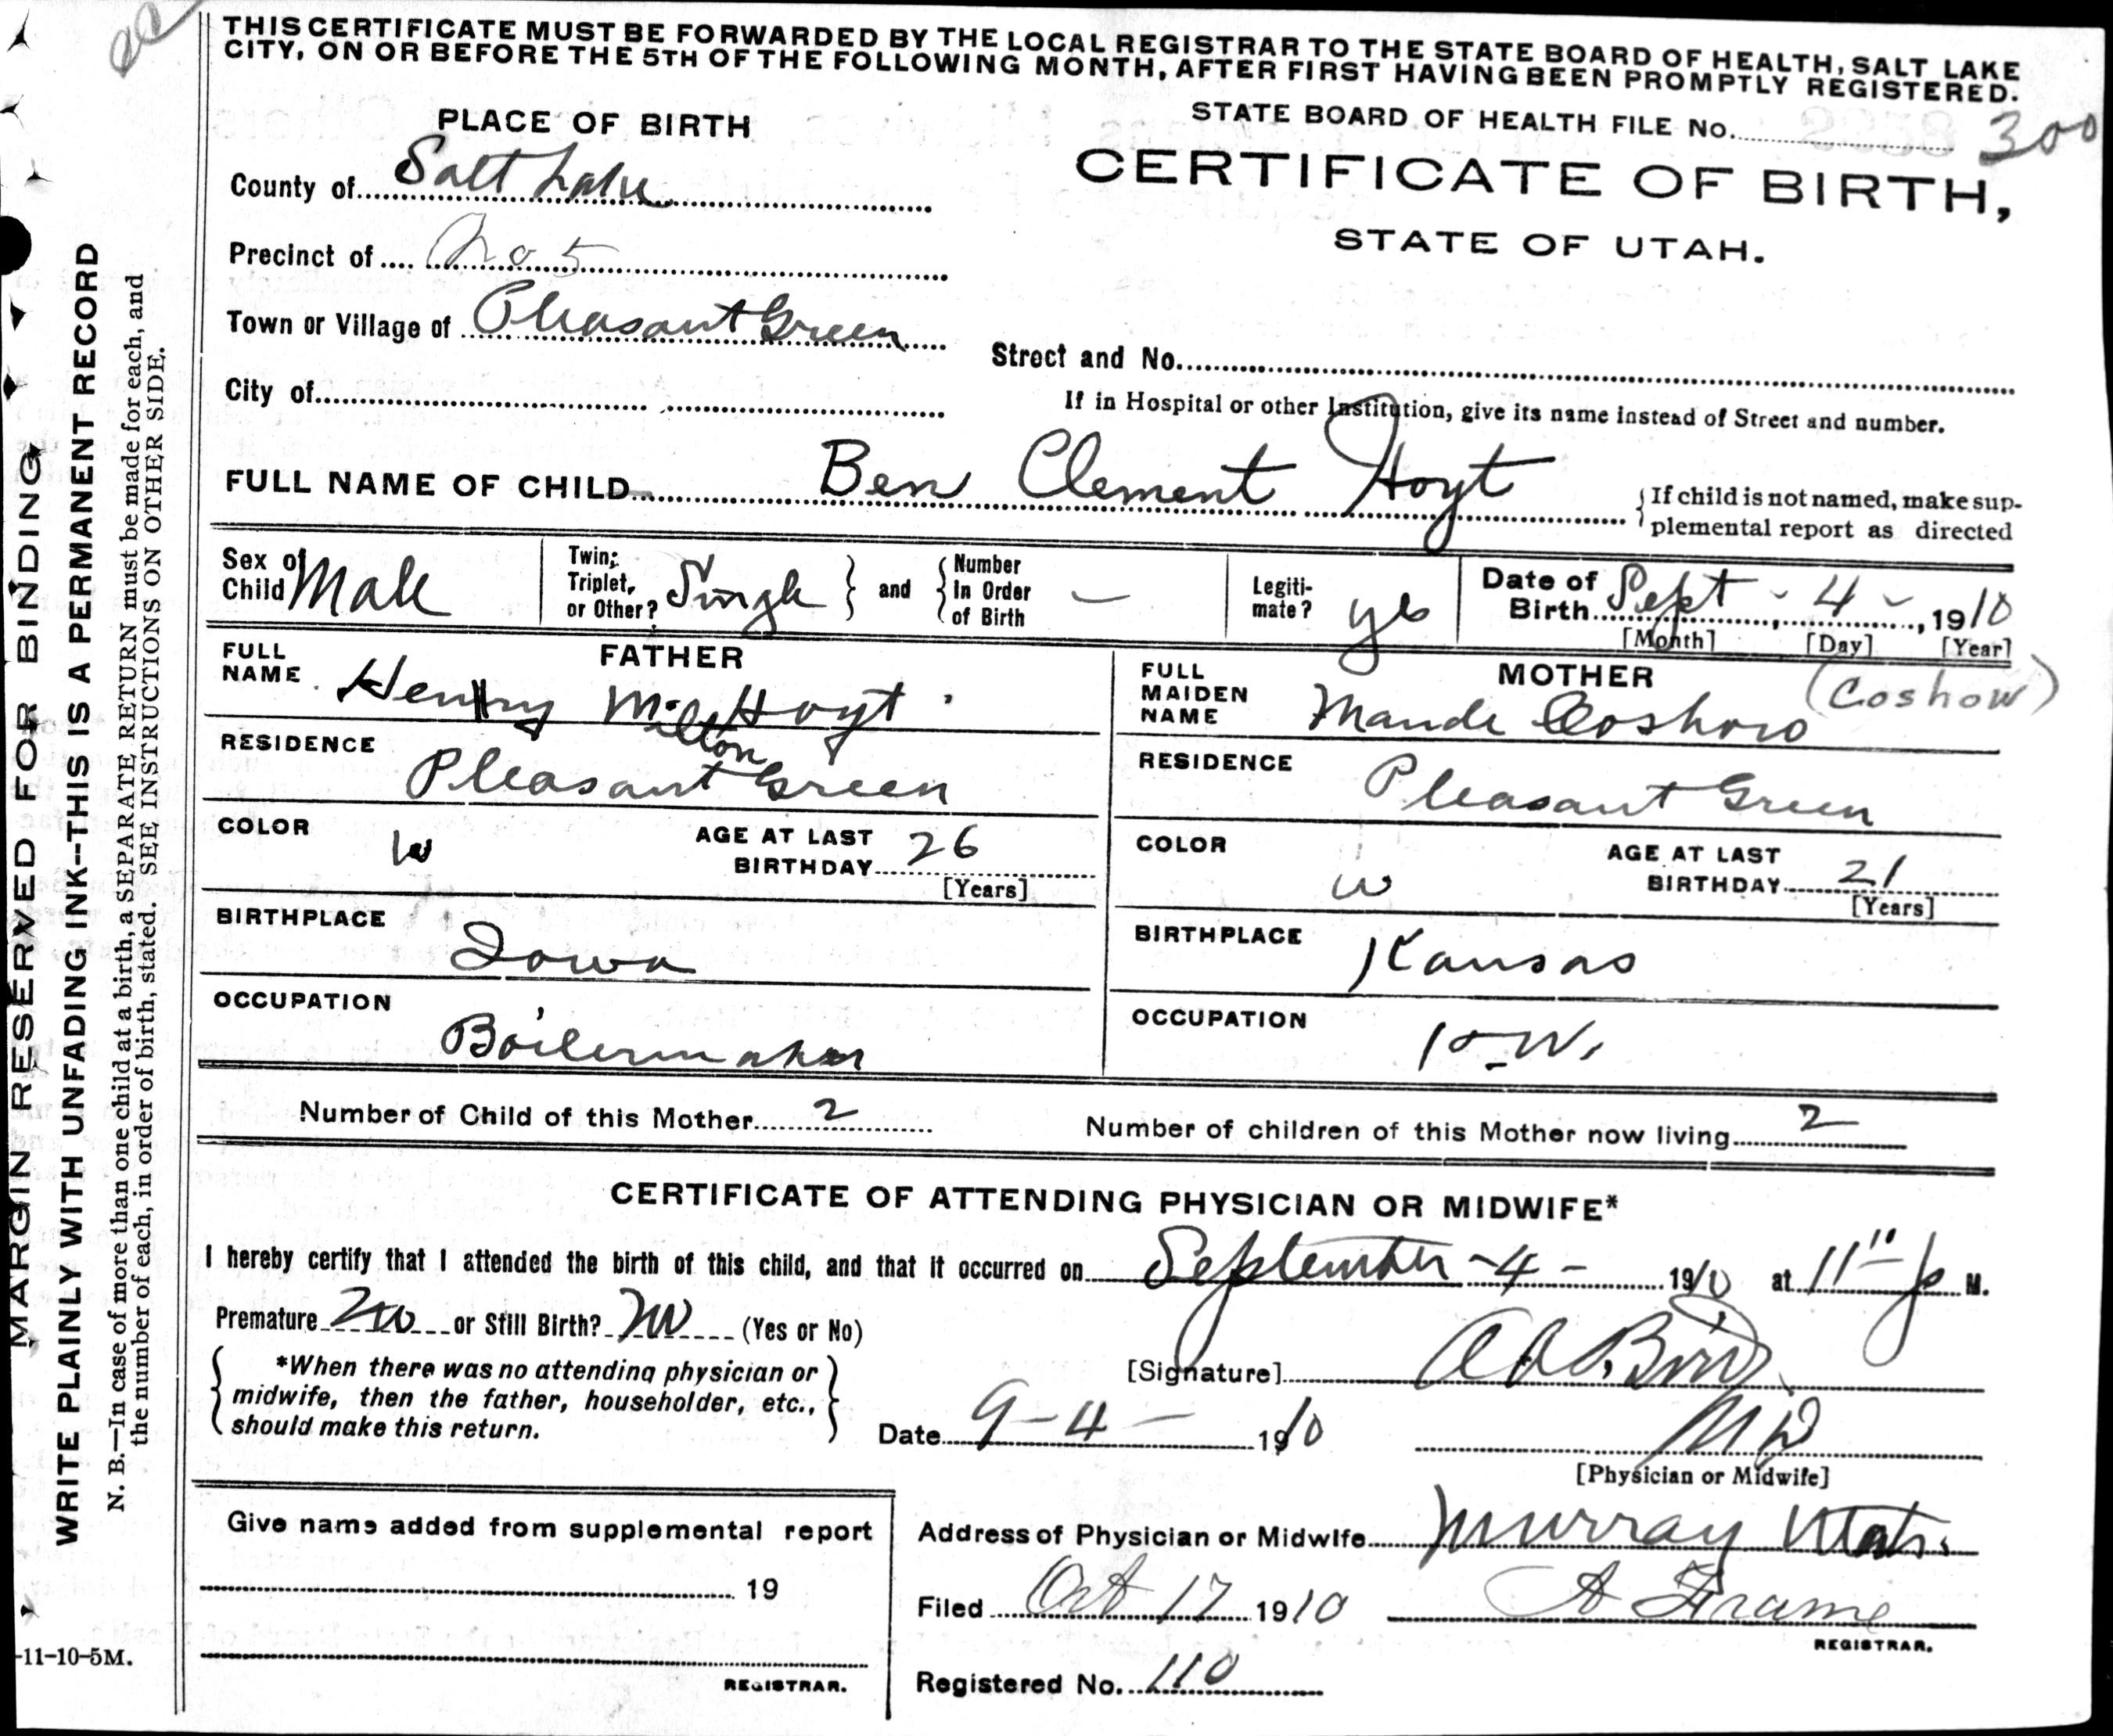 THIS CERTIFICATE MUST BE FORWARDED BY THE LOCAL REGISTRAR TO THE STATE BOARD OF HEALTH, SALT LAKE
CITY, ON OR BEFORE THE 5TH OF THE FOLLOWING MONTH, AFTER FIRST HAVING BEEN PROMPTLY REGISTERED.
STATE BOARD OF HEALTH FILE No. 300
CERTIFICATE OF BIRTH,
STATE OF UTAH.
PLACE OF BIRTH
County of Salt Lake
Precinct of No 5
Town or Village of Pleasant Green
Street and No.
City of
If in Hospital or other Institution, give its name instead of Street and number.
FULL NAME OF CHILD Ben Clement Hoyt
If child is not named, make sup-
plemental report as directed
Sex of Child Male
Twin, Triplet, or Other? Single and Number In Order of Birth —
Legiti-mate? yes
Date of Birth Sept - 4 - , 1910
[Month] [Day] [Year]
FATHER
FULL NAME Henry Milton Hoyt
RESIDENCE Pleasant Green
COLOR W
AGE AT LAST BIRTHDAY 26
[Years]
BIRTHPLACE Iowa
OCCUPATION Boilermaker
MOTHER
FULL MAIDEN NAME Maude Coshow (Coshow)
RESIDENCE Pleasant Green
COLOR W
AGE AT LAST BIRTHDAY 21
[Years]
BIRTHPLACE Kansas
OCCUPATION H.W.
Number of Child of this Mother 2
Number of children of this Mother now living 2
CERTIFICATE OF ATTENDING PHYSICIAN OR MIDWIFE*
I hereby certify that I attended the birth of this child, and that it occurred on September - 4 - 1910 at 11 p M.
Premature No or Still Birth? No (Yes or No)
*When there was no attending physician or
midwife, then the father, householder, etc.,
should make this return.
[Signature]
Date 9-4- 1910
MD
[Physician or Midwife]
Give name added from supplemental report
19
REGISTRAR.
Address of Physician or Midwife Murray Utah.
Filed Oct 17 1910 A Frame
REGISTRAR.
Registered No. 110
MARGIN RESERVED FOR BINDING
WRITE PLAINLY WITH UNFADING INK--THIS IS A PERMANENT RECORD
N. B.—In case of more than one child at a birth, a SEPARATE RETURN must be made for each, and
the number of each, in order of birth, stated. SEE INSTRUCTIONS ON OTHER SIDE.
-11-10-5M.